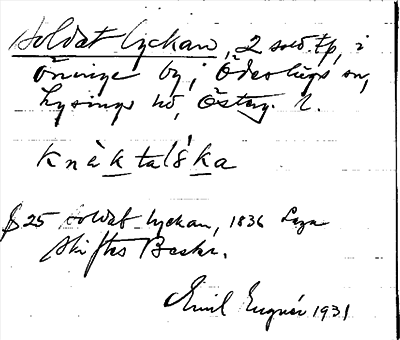 Soldat lyckan, 2 sold. tp, i
Öninge by, Ödeshögs sn,
Lysings hd, Österg. l.
Knàktalș́ka
§ 25 Soldat lyckan, 1836 Laga
Skiftes Beskr.
Emil Engnér 1931